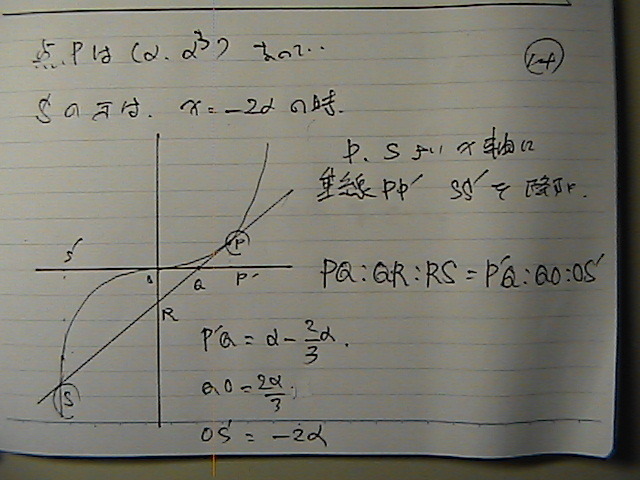 点Pは (α, α³) なので..
1-4
Sの方は. x=-2α の時.
P、Sよりx軸に
垂線PP′ SS′を降ろす.
S′
P
O
Q
P′
R
S
PQ:QR:RS=P′Q:QO:OS′
P′Q = α - 2/3 α.
QO = 2α/3.
OS′ = -2α